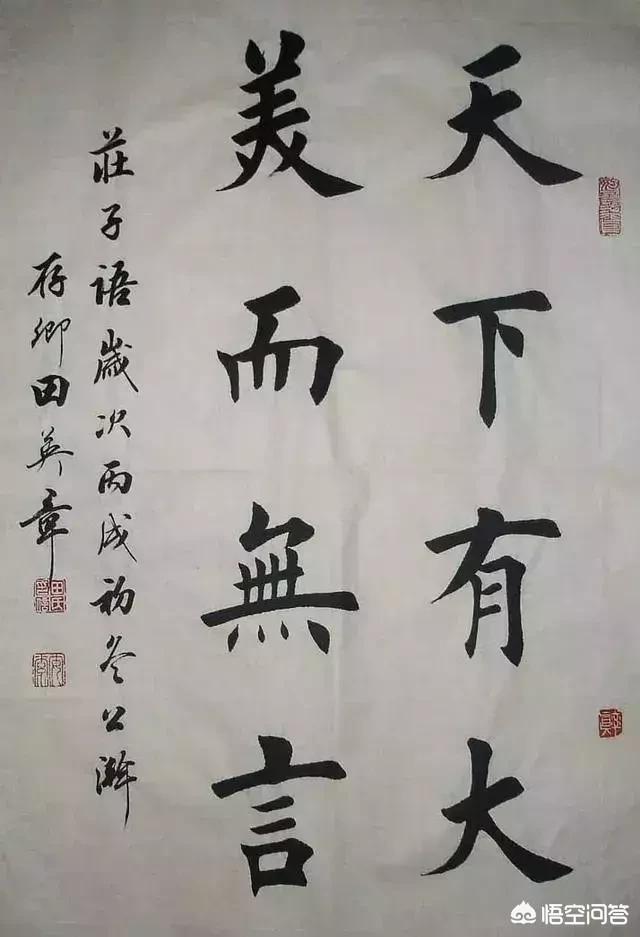 天下有大
美而無言
莊子語歲次丙戌初冬上澣
存卿田英章
悟空问答